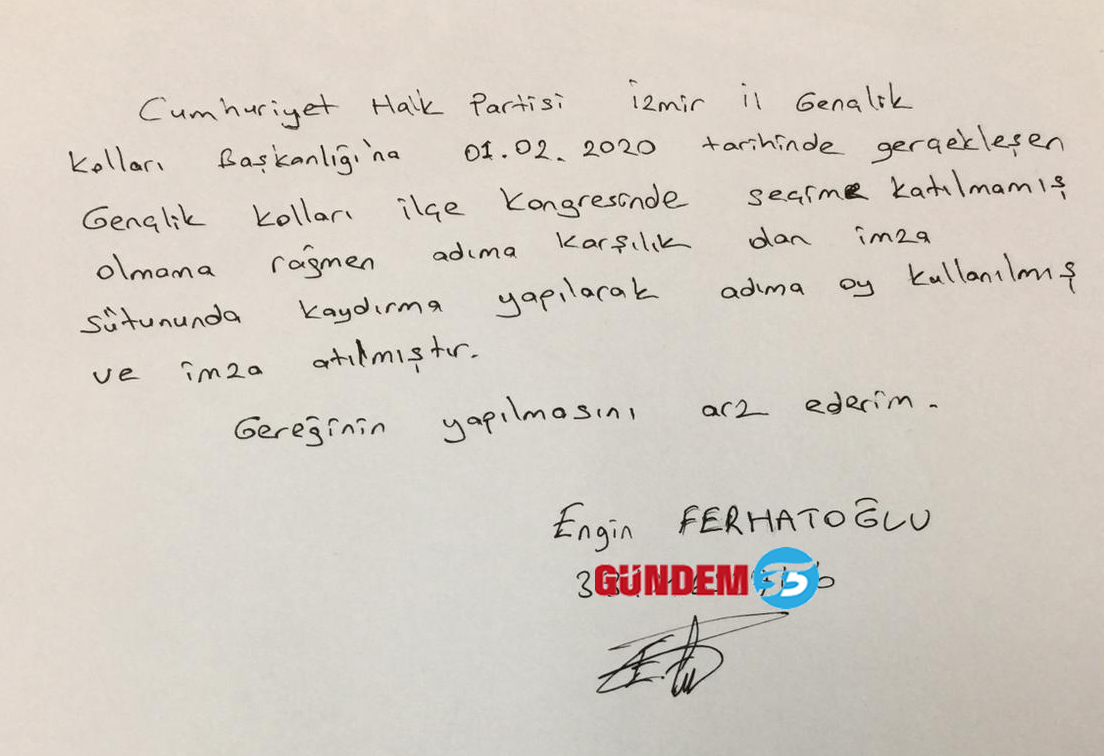 Cumhuriyet Halk Partisi İzmir il Gençlik
Kolları Başkanlığı'na 01.02.2020 tarihinde gerçekleşen
Gençlik kolları ilçe kongresinde seçime katılmamış
olmama rağmen adıma karşılık olan imza
sütununda kaydırma yapılarak adıma oy kullanılmış
ve imza atılmıştır.
Gereğinin yapılmasını arz ederim.
Engin FERHATOĞLU
GÜNDEM 35